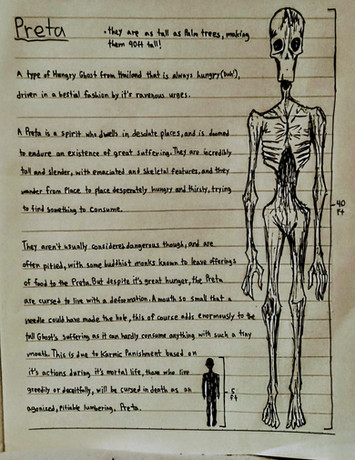 Preta
• they are as tall as Palm trees, making
them 40ft tall!
A type of Hungry Ghost from Thailand that is always hungry (duh!),
driven in a bestial fashion by it's ravenous urges.
A Preta is a spirit who dwells in desolate places, and is doomed
to endure an existence of great suffering. They are incredibly
tall and slender, with emaciated and skeletal features, and they
wander from Place to place desperately hungry and thirsty, trying
to find something to consume.
They aren't usually considered dangerous though, and are
often pitied, with some buddhist monks known to leave offerings
of food to the Preta. But despite it's great hunger, the Preta
are cursed to live with a deformation. A mouth so small that a
needle could have made the hole, this of course adds enormously to the
tall Ghost's suffering as it can hardly consume anything with such a tiny
mouth. This is due to Karmic Punishment based on
it's actions during it's mortal life, those who live
greedily or deceitfully, will be cursed in death as an
agonised, pitiable lumbering. Preta.
40
Ft
5
ft